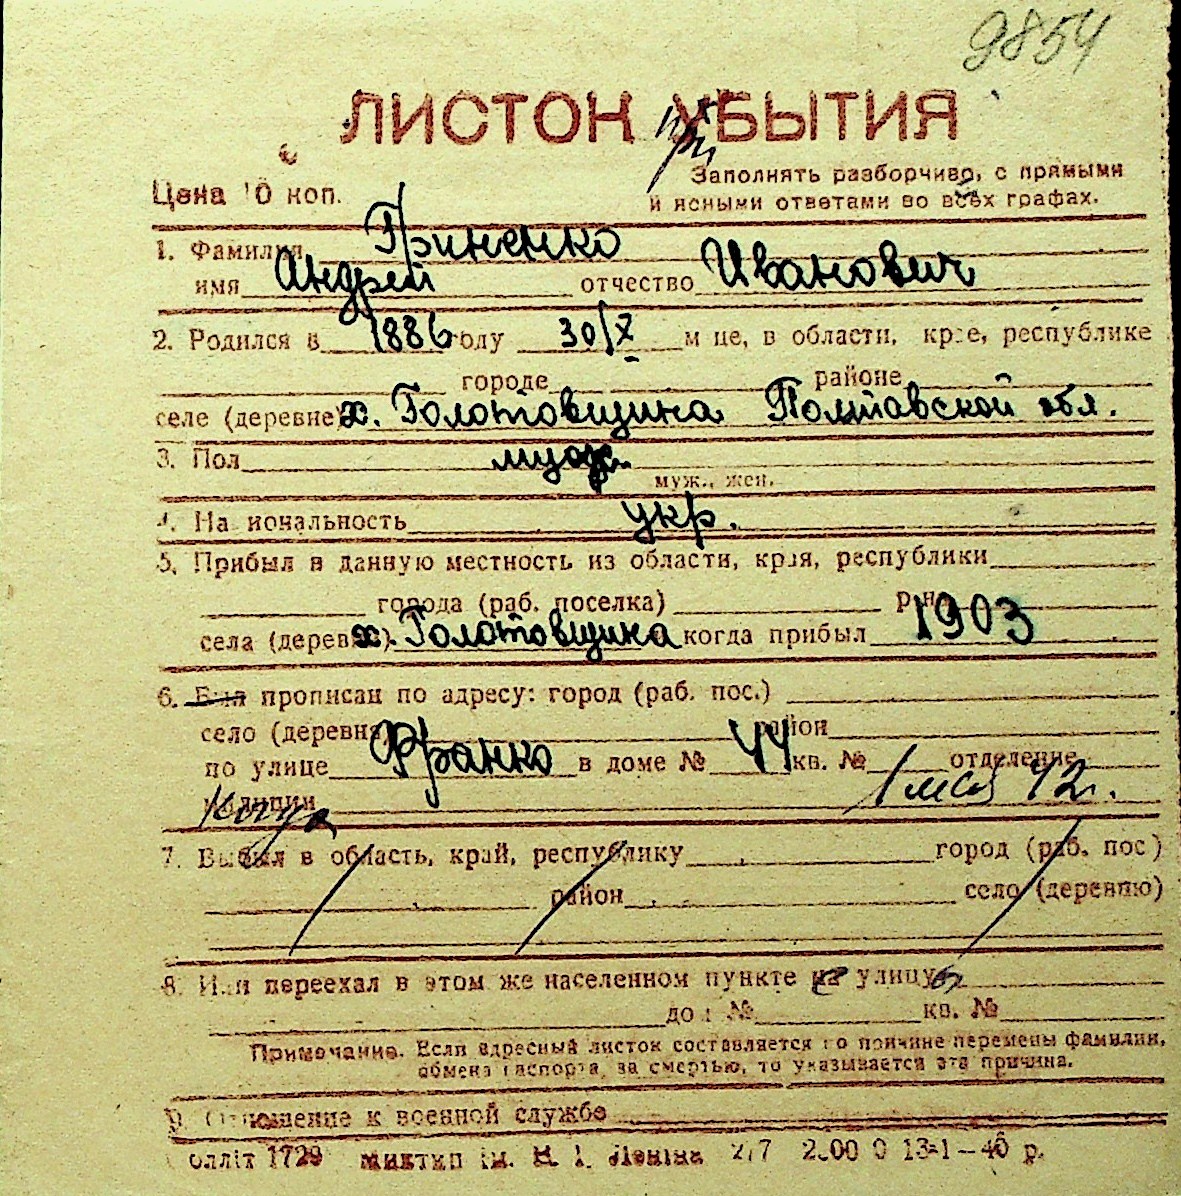 9854
ЛИСТОК УБЫТИЯ
при
Цена 10 коп.
Заполнять разборчиво, с прямыми
и ясными ответами во всех графах.
1. Фамилия Гриненко
имя Андрей отчество Иванович
2. Родился в 1886 году 30/X м це, в области, крае, республике
городе районе
селе (деревне) х. Голотовщина Полтавской обл.
3. Пол муж.
муж., жен.
4. На иональность укр.
5. Прибыл в данную местность из области, края, республики
города (раб. поселка) р н
села (деревни) х. Голотовщина когда прибыл 1903
6. Был прописан по адресу: город (раб. пос.)
село (деревня) район
по улице Франко в доме № 44 кв. № отделение
милиции 1 мая 42 г.
7. Выбыл в область, край, республику город (раб. пос)
район село (деревню)
8. Или переехал в этом же населенном пункте на улицу
дом № кв. №
Примечание. Если адресный листок составляется по причине перемены фамилии,
обмена паспорта, за смертью, то указывается эта причина.
9. Отношение к военной службе
оллiт 1729 миктип iм. В. I. Ленiна 2/7 2.00 0 13-1-40 р.